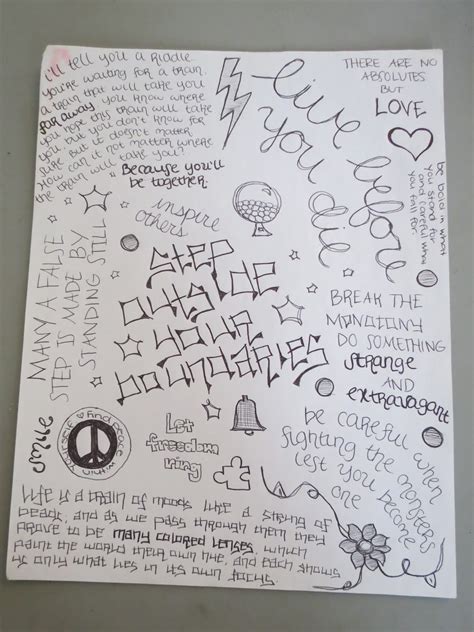 I'll tell you a Riddle.
you're waiting for a train.
a train that will take you
far away. you know where
you hope this train will take
you but you don't know for
sure but it doesn't matter.
How can it not matter where
the train will take you?
Because you'll
be together.
THERE ARE NO
ABSOLUTES
BUT
LOVE
live before
you die
be bold in what
you stand for
and careful what
you fall for.
inspire
others
MANY A FALSE
STEP IS MADE BY
STANDING STILL
step
outside
your
boundaries
BREAK THE
MONOTONY
DO SOMETHING
strange
AND
extravagant
smile
find peace within
yourself
Let
freedom
ring
be careful when
fighting the monsters
lest you become
one
Life is a train of moods like a string of
beads, and as we pass through them they
prove to be many colored lenses, which
paint the world their own hue, and each shows
us only what lies in its own focus.